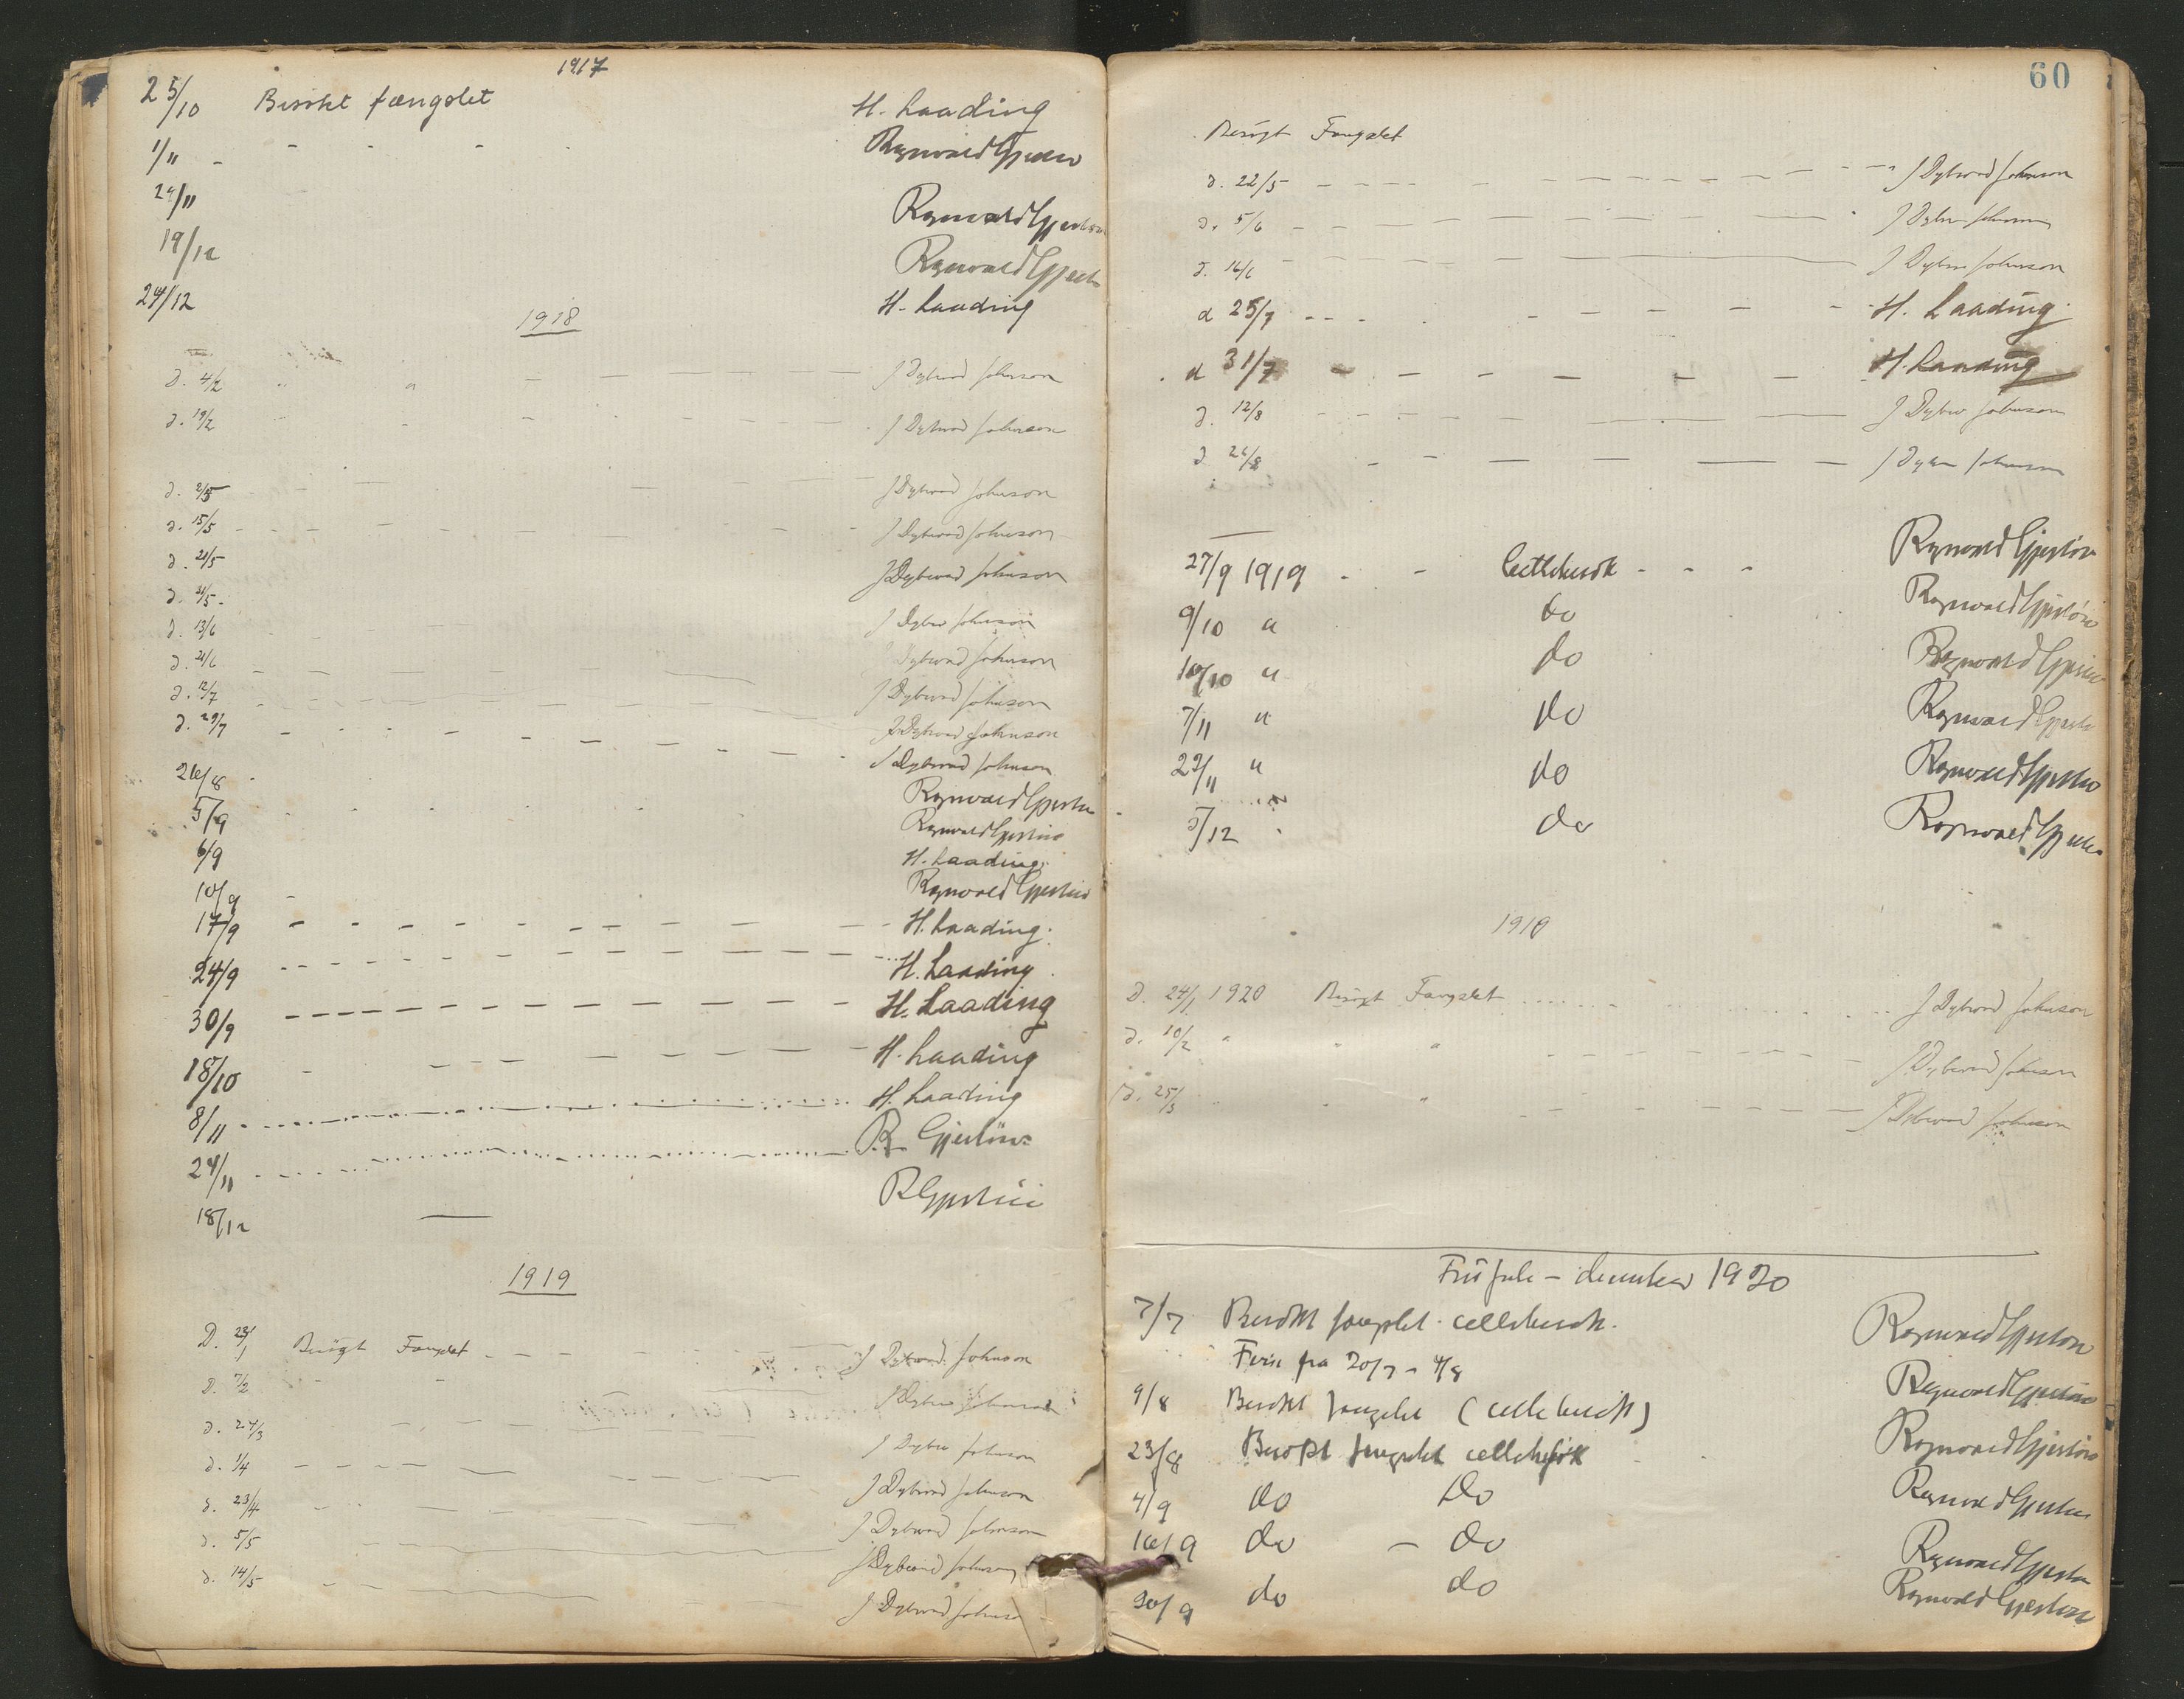 1917
25/10 Besøkt fængslet H. Laading
1/11 - - - - - Ragnvald Gjerløw
29/11 Ragnvald Gjerløw
19/12 Ragnvald Gjerløw
24/12 H. Laading
1918
D. 4/2 " " - - - - J Dybwad Johnson
d. 19/2 - - - - J Dybwad Johnson
d. 2/5 - - - - J Dybwad Johnson
d. 15/5 - - - - J Dybwad Johnson
d. 21/5 J Dybwad Johnson
d. 31/5 J Dybw Johnson
d. 13/6 J Dybwad Johnson
d. 21/6 J Dybwad Johnson
d. 12/7 J. Dybwad Johnson
d. 29/7 - - - - J Dybwad Johnson
26/8 Ragnvald Gjerløw
5/9 Ragnvald Gjerløw
6/9 H. Laading
10/9 - Ragnvald Gjerløw
17/9 - - - - H. Laading.
24/9 - - - - H. Laading
30/9 - - - - H. Laading
18/10 - - - - H. Laading
8/11 H. Laading
24/11 R Gjerløw
18/12 — R Gjerløw
1919
D. 23/1 Besøgt Fængslet - - - J Dybwad Johnson
D. 7/2 - - J Dybw Johnson
d. 24/3 - - - J Dybw Johnson
d. 1/4 - - - - J Dybwad Johnson
d. 23/4 - - - J Dybwad Johnson
d. 5/5 J Dybwad Johnson
d. 14/5 - - - J Dybwad Johnson
60
Besøgt Fængslet
d. 22/5 - - - - J Dybwad Johnson
d. 5/6 - - - - J Dybw Johnson
d. 16/6 - - - J Dybw Johnson
d 25/7 - - - - H. Laading.
d 31/7 - - - - H. Laading
d. 12/8 - - - - J Dybw Johnson
d 26/8 - - - - J Dybw Johnson
27/9 1919 - - Cellebesøk - - - Ragnvald Gjerløw
9/10 " do Ragnvald Gjerløw
10/10 " do Ragnvald Gjerløw
7/11 " do Ragnvald Gjerløw
22/11 " do Ragnvald Gjerløw
5/12 " do Ragnvald Gjerløw
1919
D. 24/1 1920 Besøgt Fængslet J Dybwad Johnson
d. 10/2 " " " - - - J Dybwad Johnson
d. 25/3 " " " - - - J Dybwad Johnson
juli - december 1920
7/7 Besøkt fængslet. cellebesøk. Ragnvald Gjerløw
Ferie fra 20/7 - 4/8
9/8 Besøkt fængslet (cellebesøk) Ragnvald Gjerløw
23/8 Besøkt fængslet cellebesøk Ragnvald Gjerløw
4/9 do do Ragnvald Gjerløw
16/9 do - do Ragnvald Gjerløw
30/9 do do Ragnvald Gjerløw